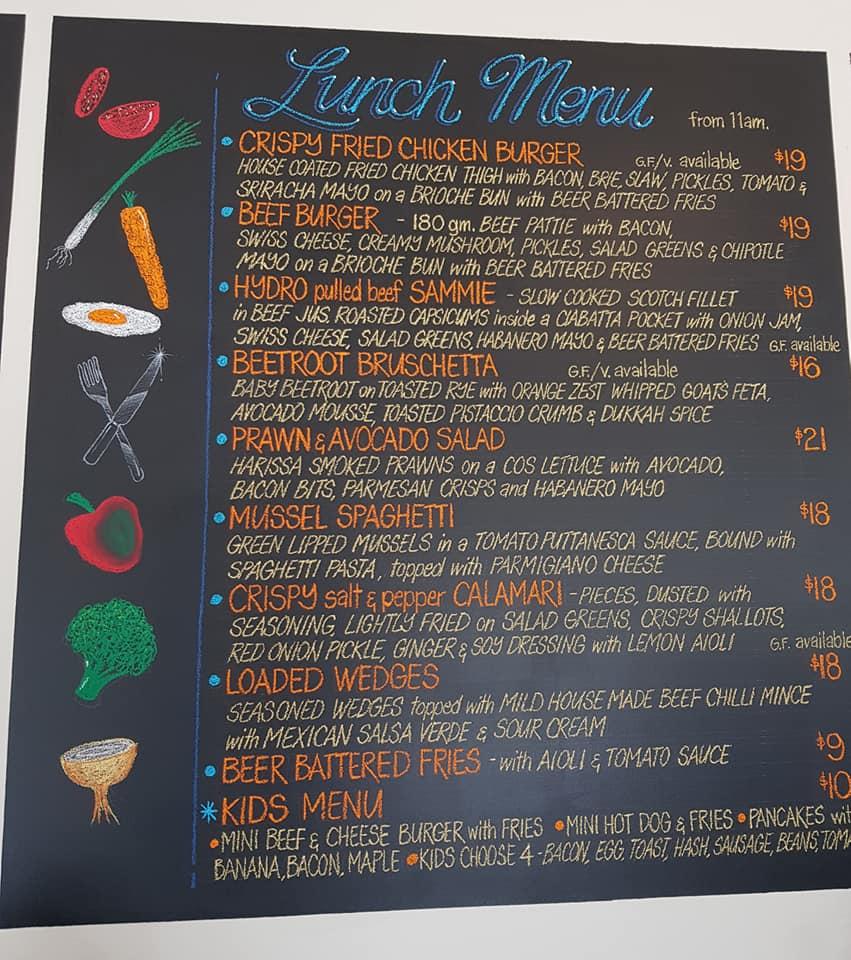 Lunch Menu from 11am.
CRISPY FRIED CHICKEN BURGER G.F./V. available $19
HOUSE COATED FRIED CHICKEN THIGH with BACON, BRIE, SLAW, PICKLES, TOMATO &
SRIRACHA MAYO on a BRIOCHE BUN with BEER BATTERED FRIES
BEEF BURGER - 180 gm. BEEF PATTIE with BACON, $19
SWISS CHEESE, CREAMY MUSHROOM, PICKLES, SALAD GREENS & CHIPOTLE
MAYO on a BRIOCHE BUN with BEER BATTERED FRIES
HYDRO pulled beef SAMMIE - SLOW COOKED SCOTCH FILLET $19
in BEEF JUS, ROASTED CAPSICUMS inside a CIABATTA POCKET with ONION JAM,
SWISS CHEESE, SALAD GREENS, HABANERO MAYO & BEER BATTERED FRIES G.F. available
BEETROOT BRUSCHETTA G.F./V. available $16
BABY BEETROOT on TOASTED RYE with ORANGE ZEST WHIPPED GOATS FETA,
AVOCADO MOUSSE, TOASTED PISTACCIO CRUMB & DUKKAH SPICE
PRAWN & AVOCADO SALAD $21
HARISSA SMOKED PRAWNS on a COS LETTUCE with AVOCADO,
BACON BITS, PARMESAN CRISPS and HABANERO MAYO
MUSSEL SPAGHETTI $18
GREEN LIPPED MUSSELS in a TOMATO PUTTANESCA SAUCE, BOUND with
SPAGHETTI PASTA, topped with PARMIGIANO CHEESE
CRISPY salt & pepper CALAMARI - PIECES, DUSTED with $18
SEASONING, LIGHTLY FRIED on SALAD GREENS, CRISPY SHALLOTS,
RED ONION PICKLE, GINGER & SOY DRESSING with LEMON AIOLI G.F. available
LOADED WEDGES $18
SEASONED WEDGES topped with MILD HOUSE MADE BEEF CHILLI MINCE
with MEXICAN SALSA VERDE & SOUR CREAM
BEER BATTERED FRIES - with AIOLI & TOMATO SAUCE $9
KIDS MENU $10
MINI BEEF & CHEESE BURGER with FRIES • MINI HOT DOG & FRIES • PANCAKES wit
BANANA, BACON, MAPLE • KIDS CHOOSE 4 - BACON, EGG, TOAST, HASH, SAUSAGE, BEANS, TOMA